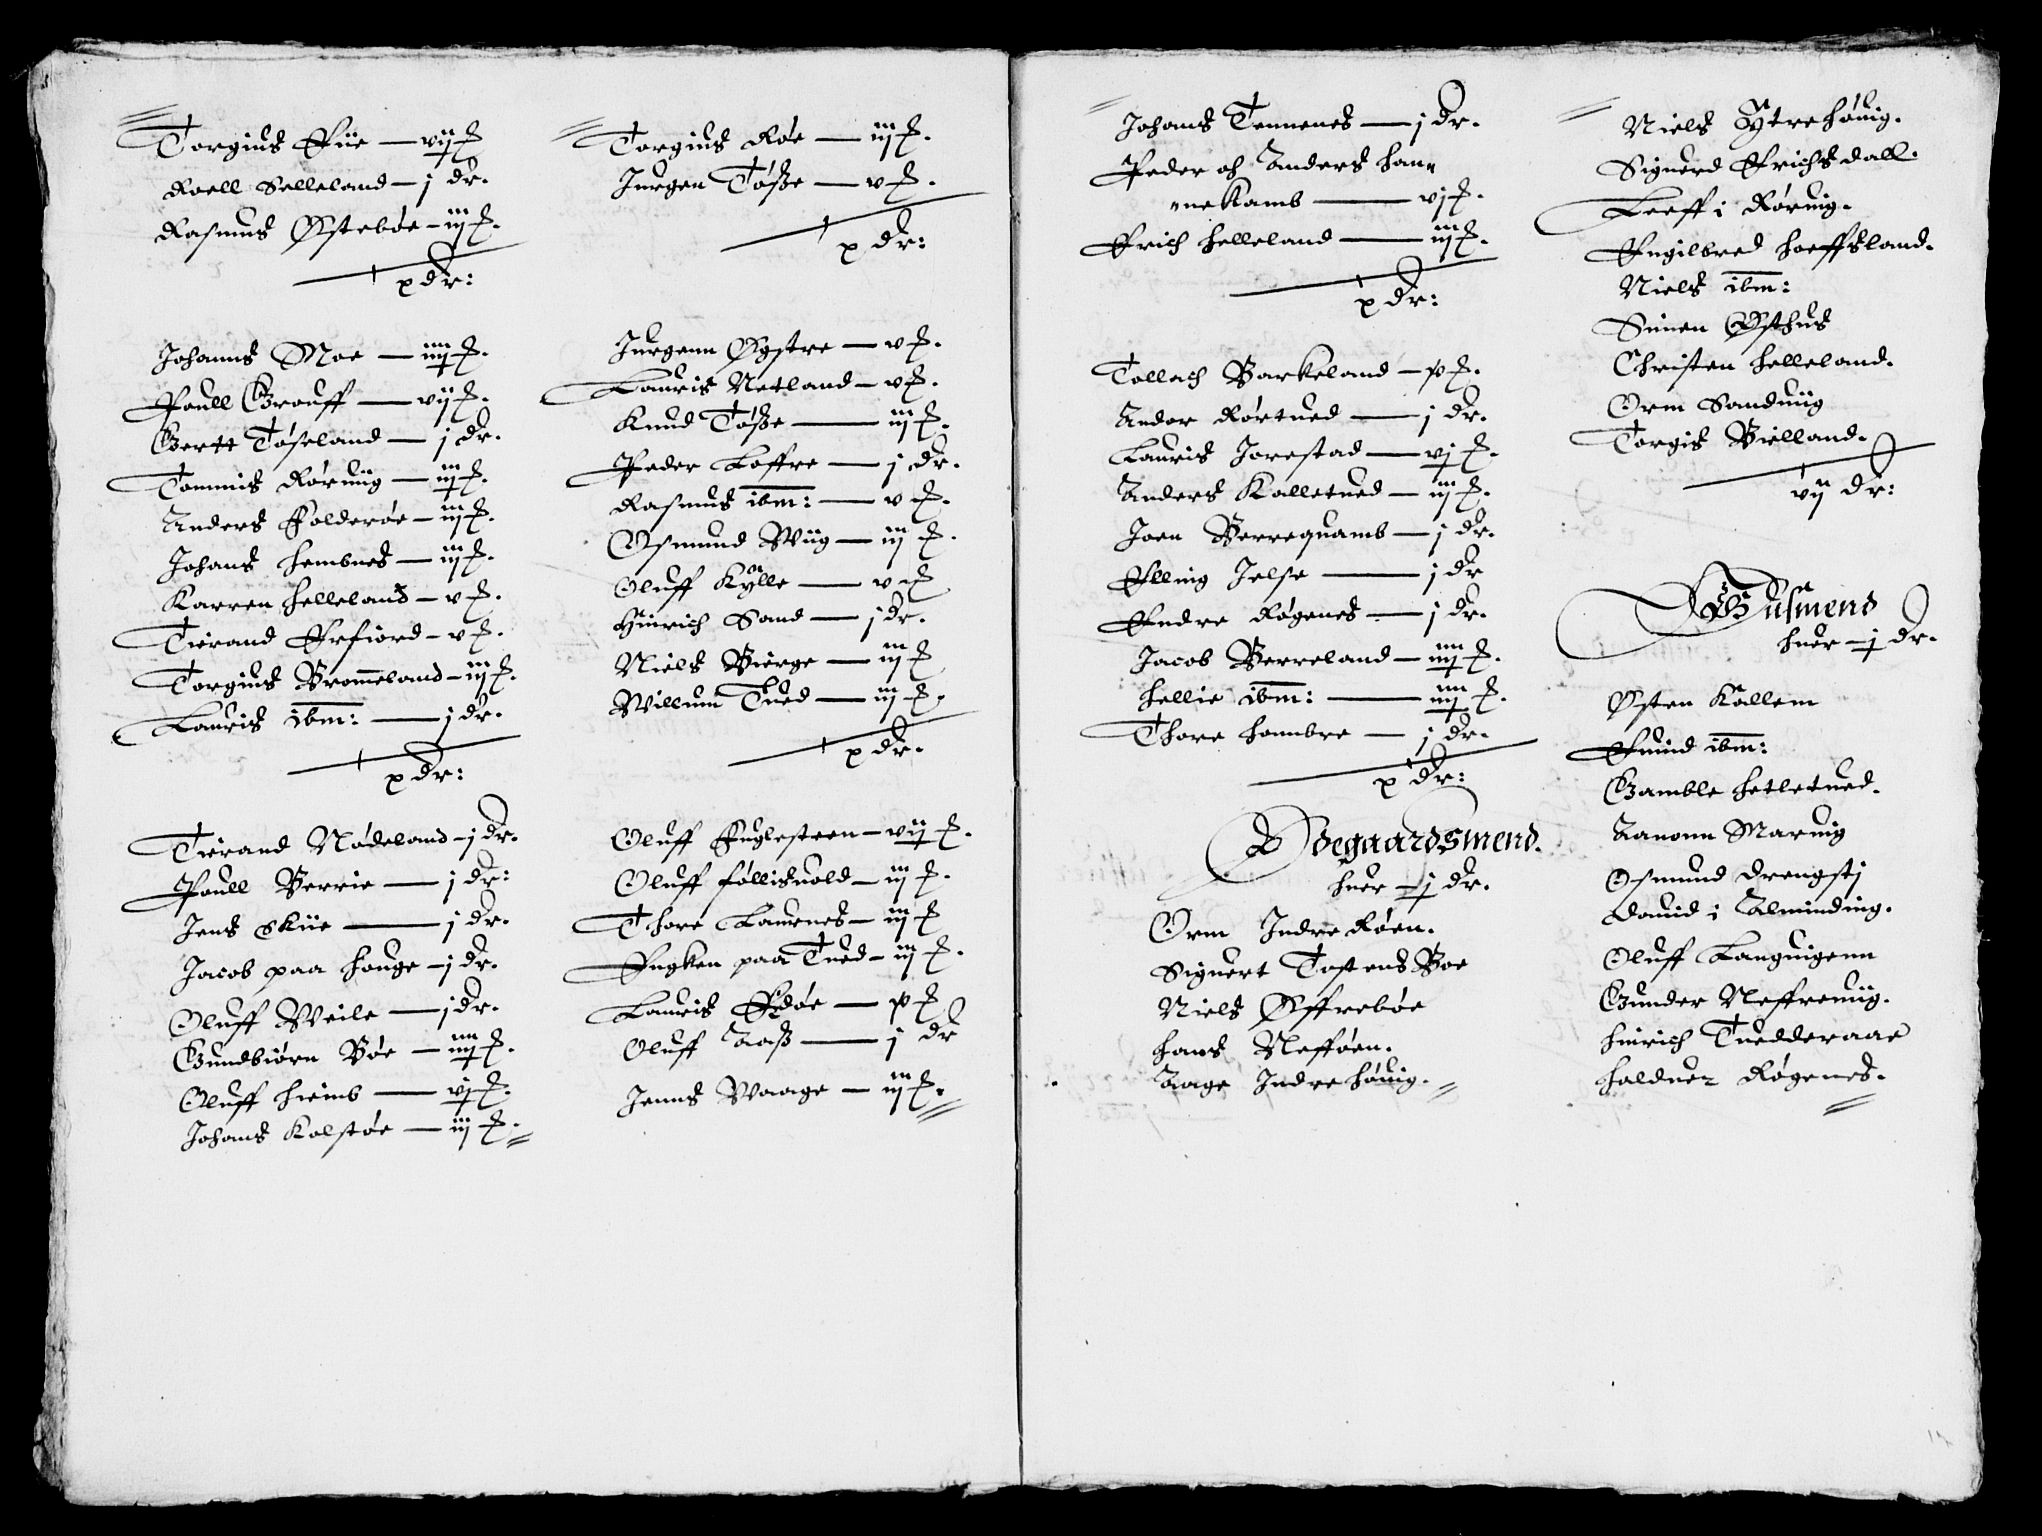 Torgius Fiie — vij ß
Roell Selleland — j dr.
Rasmus Østebøe — iij ß.
x dr:
Johanns Moe — iiij ß.
Poull Grouff — vij ß.
Gertt Tøseland — j dr.
Tommis Røruiig — iij ß.
Anders Folderøe — iij ß.
Johans Hembnes — iij ß.
Karren Helleland — v ß.
Tierand Erfiord — v ß.
Torgius Brommeland — iij ß.
Lauris ibm: — j dr.
x dr:
Tierand Nødeland — j dr.
Poull Berrie — j dr:
Jens Skiie — j dr.
Jacob paa Houge — j dr.
Oluff Weile — j dr.
Gundbiørn Bøe — iiij ß.
Oluff Hieimb — vj ß.
Johans Kolstøe — iij ß.
Torgius Røe — iij ß.
Jurgen Tøsße — v ß.
x dr:
Jurgenn Øystre — v ß.
Lauris Netland — v ß.
Knud Tøsße — iij ß.
Peder Loffre — j dr.
Rasmus ibm: — v ß.
Osmund Wiig — iij ß.
Oluff Kylle — v ß
Hinrich Sand — j dr.
Niels Bierge — iij ß
Willum Tued — iij ß.
x dr.
Oluff Fuglesteen — vij ß.
Oluff Føllisuold — iij ß.
Thore Laurnes — iij ß
Engken paa Tued — iij ß.
Lauris Eedøe — x ß
Oluff Aaß — j dr
Jenns Waage — iij ß.
Johans Tennenes — j dr.
Peder oh Anders Han=
=nekamb — vj ß.
Erich Helleland — iij ß.
x dr:
Tollach Barkeland — x ß.
Ander Rørtued — j dr.
Lauris Jorestad — vj ß.
Anders Kalletued — iij ß.
Joen Berrequamb — j dr.
Elling Jelse — j dr
Endre Røgenes — j dr.
Jacob Berreland — iiij ß.
Hellie ibm: — iiij ß.
Thore Hombre — j dr.
x dr:
Ødegaardsmend.
huer — j dr.
Orm Indre Røen.
Siguert Tostensboe
Niels Øffrebøe
Hans Nefføen.
Aage Indre Høuig.
Niels Yttre Høuig.
Siguerd Erichsdall.
Leeff i Røruig.
Engilbred Hoeffsland.
Niels ibm:
Simen Østhus
Christen Helleland.
Orm Sanduiig
Torgis Bielland.
vij dr:
Husmend
huer — j dr.
Østen Kallem
Euind ibm:
Gamble Hetletued.
Aanonn Maruig
Osmund Drengstj
Dauid i Alminding.
Oluff Languigenn
Gunder Neffreuiig.
Hinrich Tuedderaae
Halduer Røgenes.